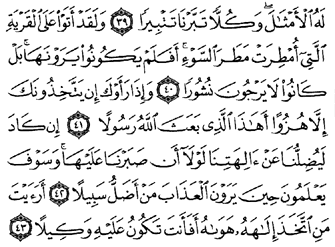 لَهُ ٱلْأَمْثَٰلَ ۖ وَكُلًّا تَبَّرْنَا تَتْبِيرًا ٣٩ وَلَقَدْ أَتَوْا۟ عَلَى ٱلْقَرْيَةِ
ٱلَّتِىٓ أُمْطِرَتْ مَطَرَ ٱلسَّوْءِ ۚ أَفَلَمْ يَكُونُوا۟ يَرَوْنَهَا ۚ بَلْ
كَانُوا۟ لَا يَرْجُونَ نُشُورًا ٤٠ وَإِذَا رَأَوْكَ إِن يَتَّخِذُونَكَ
إِلَّا هُزُوًا أَهَٰذَا ٱلَّذِى بَعَثَ ٱللَّهُ رَسُولًا ٤١ إِن كَادَ
لَيُضِلُّنَا عَنْ ءَالِهَتِنَا لَوْلَآ أَن صَبَرْنَا عَلَيْهَا ۚ وَسَوْفَ
يَعْلَمُونَ حِينَ يَرَوْنَ ٱلْعَذَابَ مَنْ أَضَلُّ سَبِيلًا ٤٢ أَرَءَيْتَ
مَنِ ٱتَّخَذَ إِلَٰهَهُۥ هَوَىٰهُ أَفَأَنتَ تَكُونُ عَلَيْهِ وَكِيلًا ٤٣